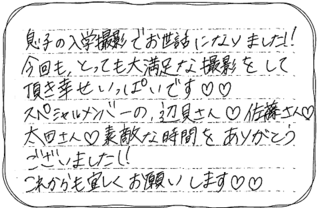 息子の入学撮影でお世話になりました!!
今回も、とっても大満足な撮影をして
頂き幸せいっぱいです♡♡
スペシャルメンバーの、辺見さん♡佐藤さん♡
太田さん♡素敵な時間をありがとう
ございました!!
これからも宜しくお願いします♡♡